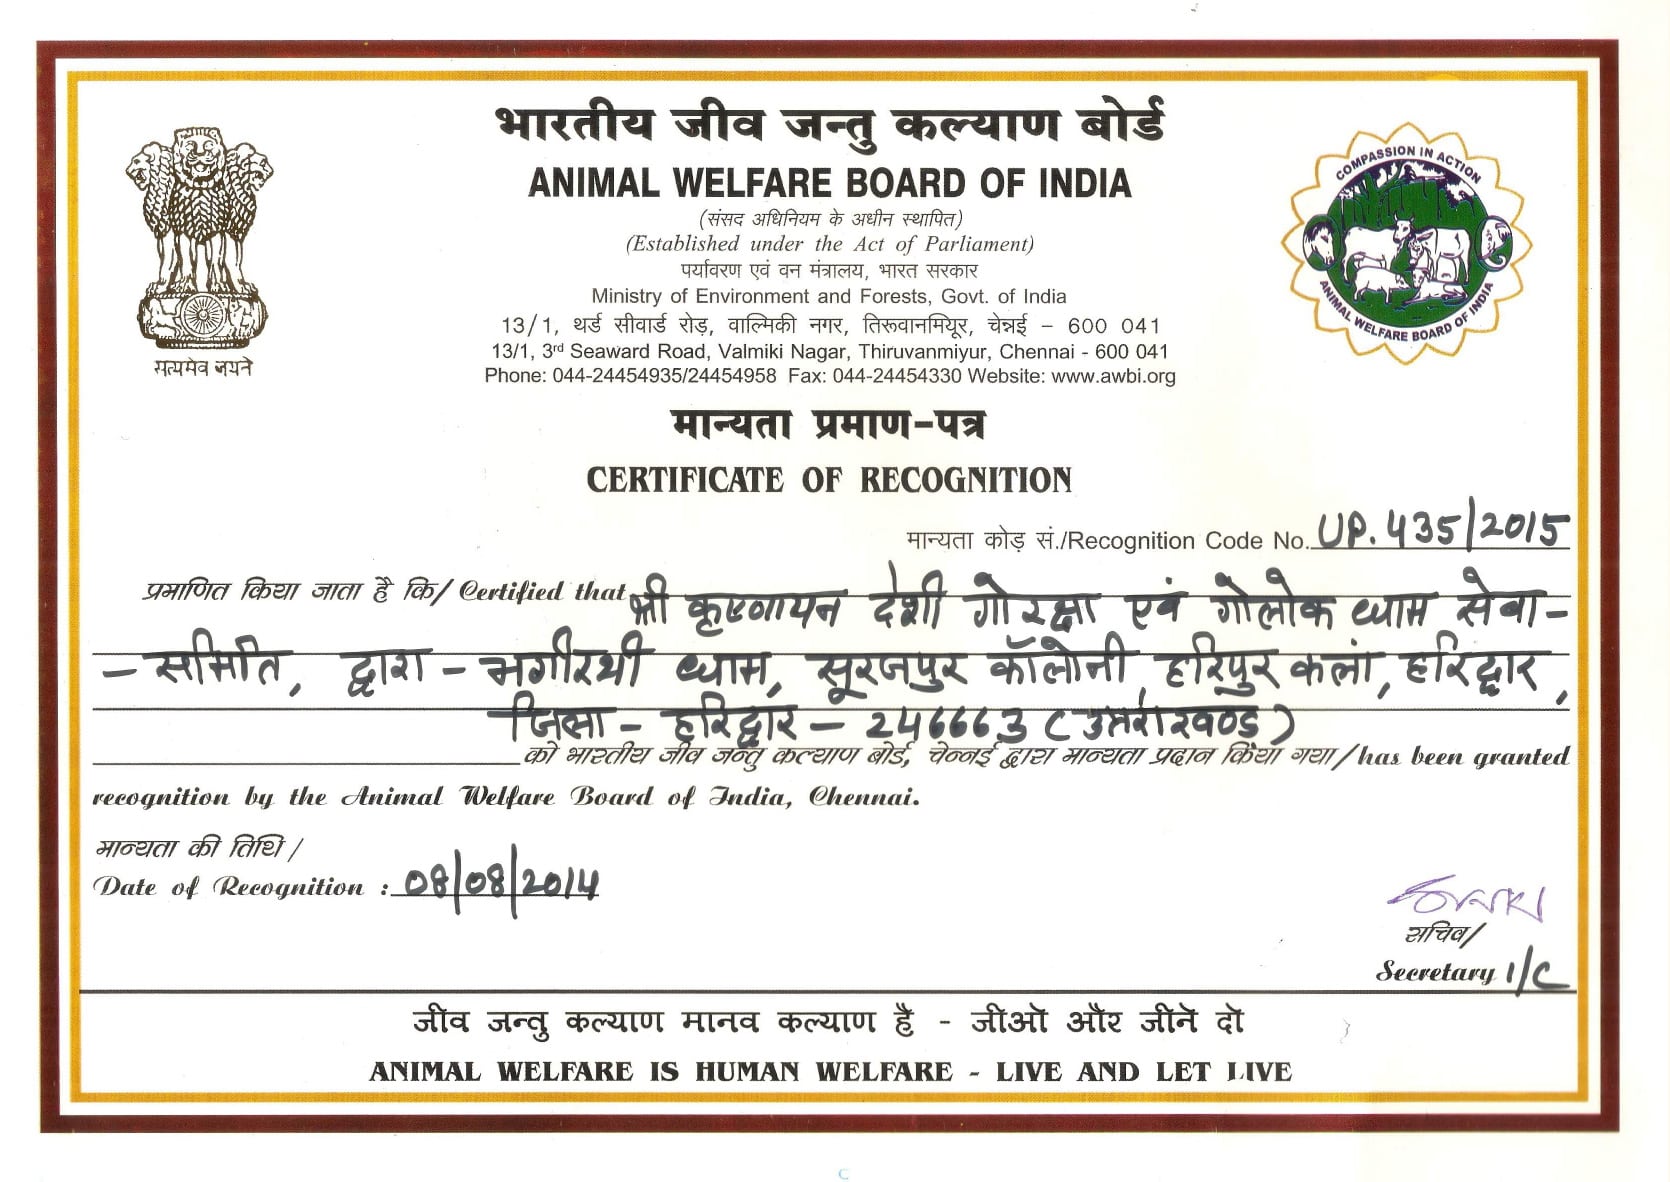 भारतीय जीव जन्तु कल्याण बोर्ड
ANIMAL WELFARE BOARD OF INDIA
(संसद अधिनियम के अधीन स्थापित)
(Established under the Act of Parliament)
पर्यावरण एवं वन मंत्रालय, भारत सरकार
Ministry of Environment and Forests, Govt. of India
13/1, थर्ड सीवार्ड रोड़, वाल्मिकी नगर, तिरूवानमियूर, चेन्नई – 600 041
13/1, 3rd Seaward Road, Valmiki Nagar, Thiruvanmiyur, Chennai - 600 041
Phone: 044-24454935/24454958 Fax: 044-24454330 Website: www.awbi.org
सत्यमेव जयते
COMPASSION IN ACTION
ANIMAL WELFARE BOARD OF INDIA
मान्यता प्रमाण-पत्र
CERTIFICATE OF RECOGNITION
मान्यता कोड़ सं./Recognition Code No. UP. 435/2015
प्रमाणित किया जाता है कि/ Certified that श्री कृष्णायन देशी गोरक्षा एवं गोलोक धाम सेवा-
- समिति, द्वारा - भगीरथी धाम, सूरजपुर कॉलोनी, हरिपुर कलां, हरिद्वार,
जिला - हरिद्वार - 246663 (उत्तराखण्ड)
को भारतीय जीव जन्तु कल्याण बोर्ड, चेन्नई द्वारा मान्यता प्रदान किया गया/has been granted
recognition by the Animal Welfare Board of India, Chennai.
मान्यता की तिथि/
Date of Recognition : 08/08/2014
सचिव/
Secretary I/C
जीव जन्तु कल्याण मानव कल्याण है - जीओ और जीने दो
ANIMAL WELFARE IS HUMAN WELFARE - LIVE AND LET LIVE